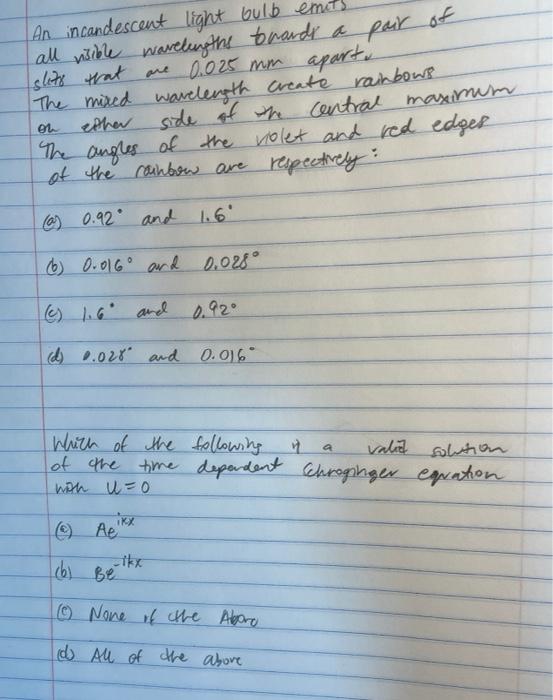 An incandescent light bulb emits
all visible wavelengths towards a pair of
slits that are 0.025 mm apart.
The mixed wavelength create rainbows
on either side of the central maximum
The angles of the violet and red edges
of the rainbow are respectively:
(a) 0.92° and 1.6°
(b) 0.016° and 0.028°
(c) 1.6° and 0.92°
(d) 0.028° and 0.016°
Which of the following is a valid solution
of the time dependent Schroginger equation
with U=0
(a) Ae^{ikx}
(b) Be^{-ikx}
(c) None of the Above
(d) All of the above